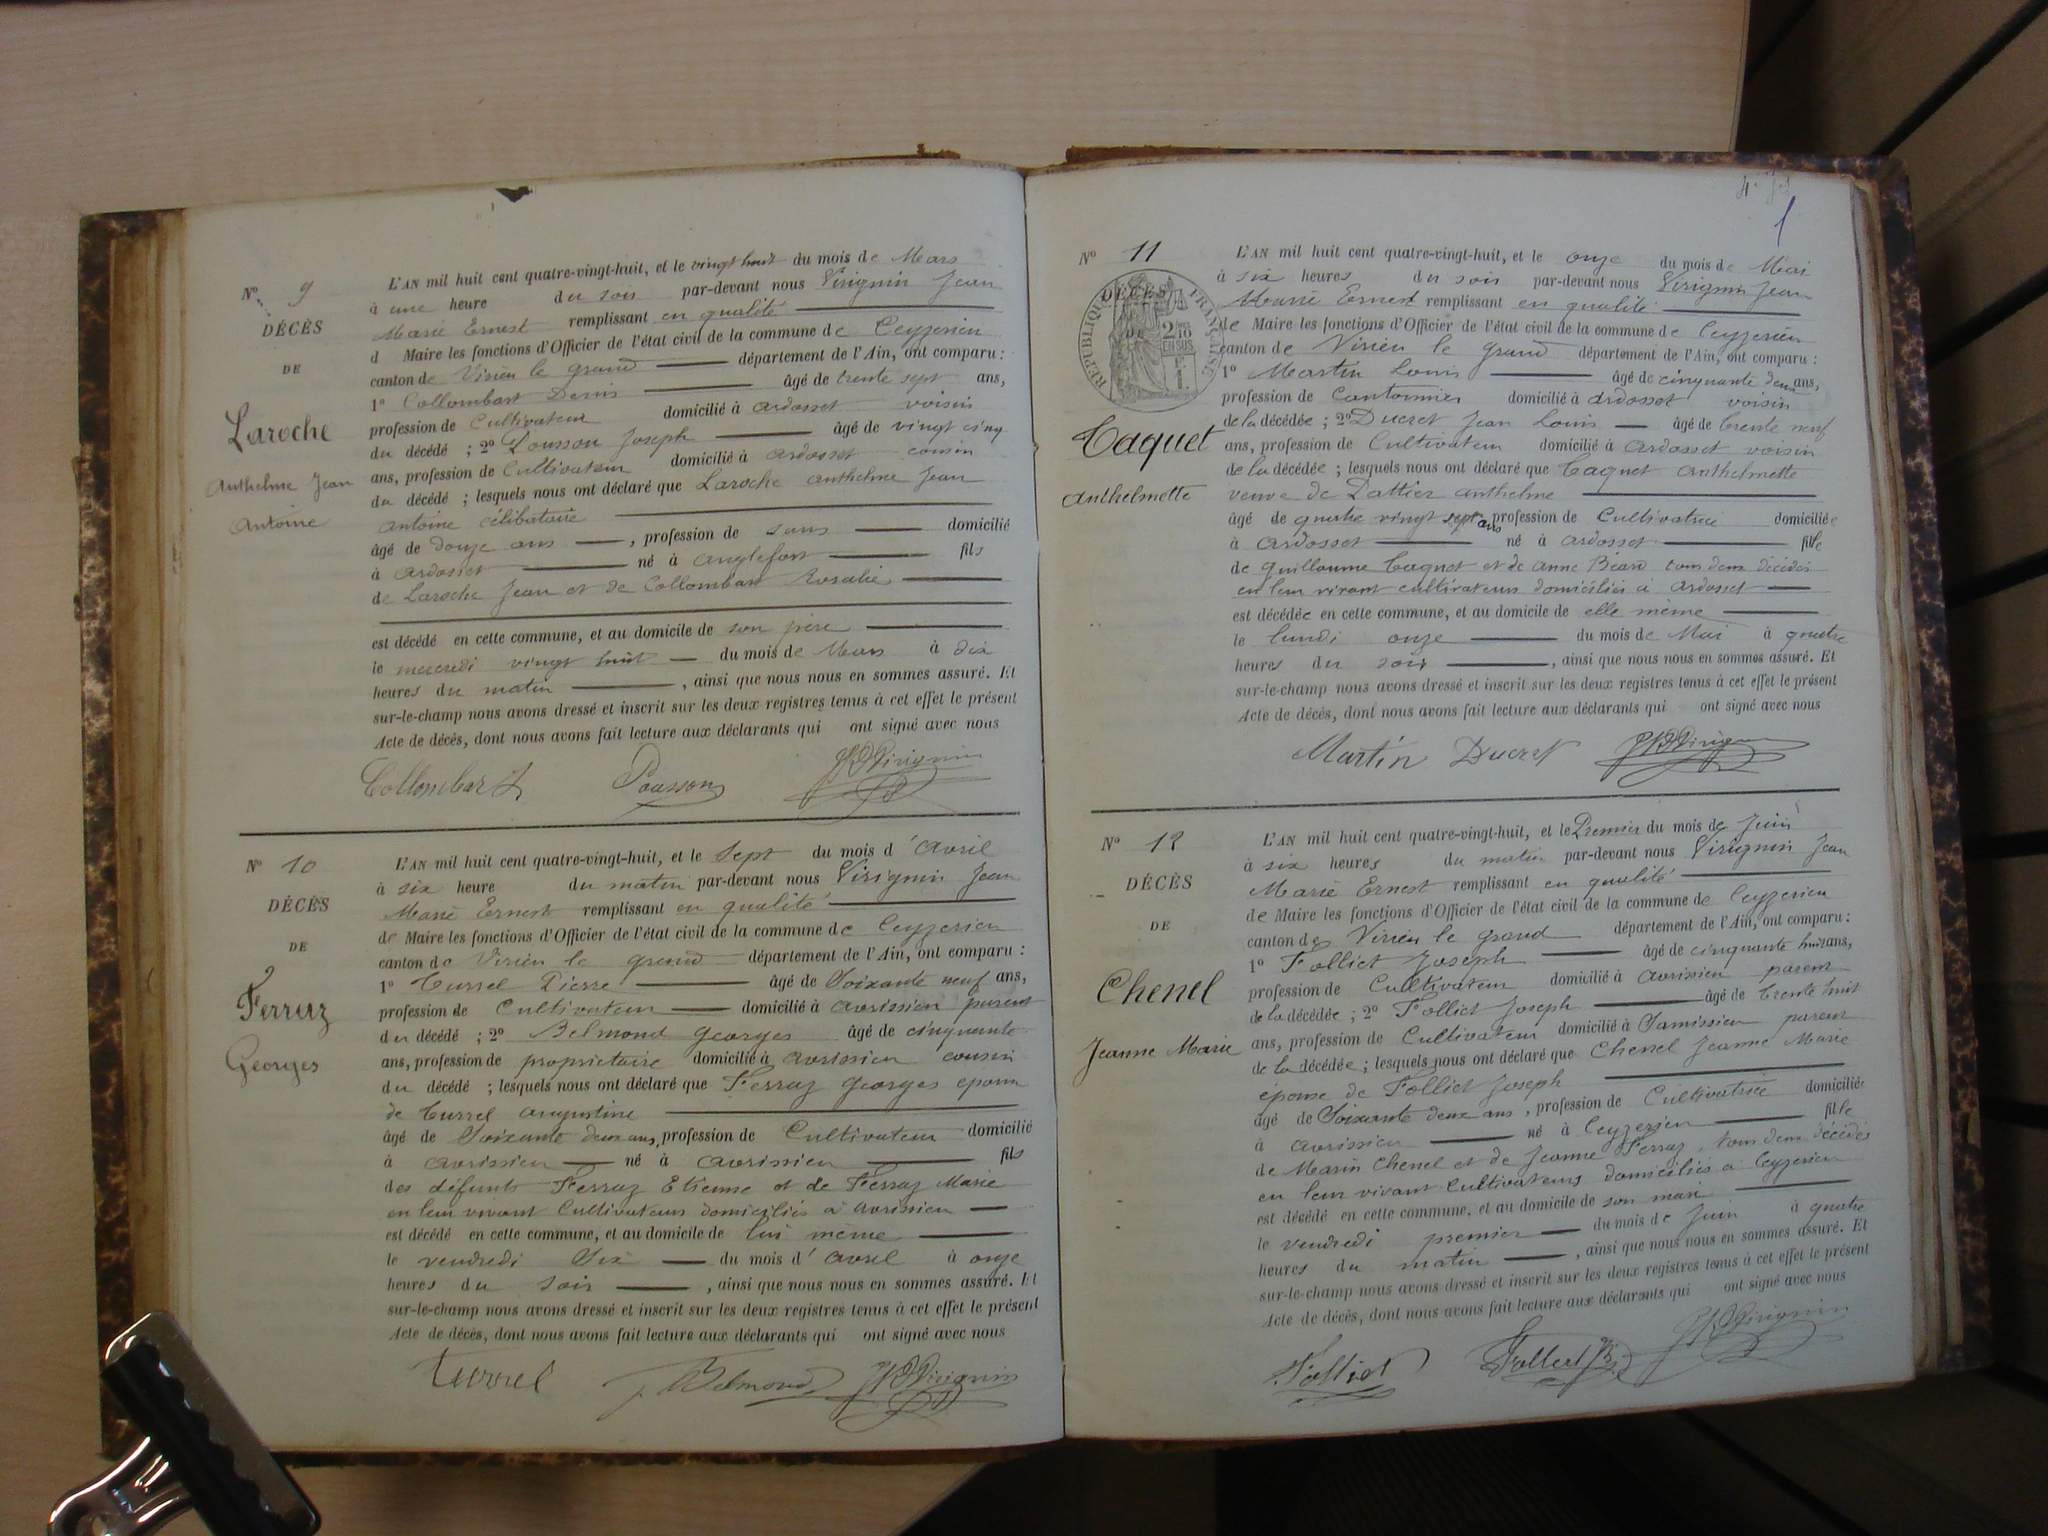 N° 9
DÉCÈS
DE
Laroche
Anthelme Jean
Antoine
L'AN mil huit cent quatre-vingt-huit, et le vingt huit du mois de Mars
à une heure du soir par-devant nous Virignin Jean
Marie Ernest remplissant en qualité
d Maire les fonctions d'Officier de l'état civil de la commune de Ceyzerieu
canton de Virieu le grand département de l'Ain, ont comparu :
1° Collombart Denis âgé de trente sept ans,
profession de Cultivateur domicilié à ardosset voisin
du décédé ; 2° Pousson Joseph âgé de vingt cinq
ans, profession de Cultivateur domicilié à ardosset cousin
du décédé ; lesquels nous ont déclaré que Laroche anthelme Jean
antoine célibataire
âgé de douze ans , profession de sans domicilié
à ardosset né à anglefort fils
de Laroche Jean et de Collombart Rosalie
est décédé en cette commune, et au domicile de son père
le mercredi vingt huit du mois de Mars à dix
heures du matin , ainsi que nous nous en sommes assuré. Et
sur-le-champ nous avons dressé et inscrit sur les deux registres tenus à cet effet le présent
Acte de décès, dont nous avons fait lecture aux déclarants qui ont signé avec nous
Collombart Pousson Virignin
N° 10
DÉCÈS
DE
Ferraz
Georges
L'AN mil huit cent quatre-vingt-huit, et le Sept du mois d'avril
à six heure du matin par-devant nous Virignin Jean
Marie Ernest remplissant en qualité
de Maire les fonctions d'Officier de l'état civil de la commune de Ceyzerieu
canton de Virieu le grand département de l'Ain, ont comparu :
1° Turrel Pierre âgé de Soixante neuf ans,
profession de Cultivateur domicilié à avrissieu parent
du décédé ; 2° Belmond Georges âgé de cinquante
ans, profession de propriétaire domicilié à avrissieu cousin
du décédé ; lesquels nous ont déclaré que Ferraz Georges époux
de Turrel augustine
âgé de Soixante deux ans, profession de Cultivateur domicilié
à avrissieu né à avrissieu fils
des défunts Ferraz Etienne et de Ferraz Marie
en leur vivant Cultivateurs domiciliés à avrissieu
est décédé en cette commune, et au domicile de lui même
le vendredi Six du mois d'avril à onze
heures du soir , ainsi que nous nous en sommes assuré. Et
sur-le-champ nous avons dressé et inscrit sur les deux registres tenus à cet effet le présent
Acte de décès, dont nous avons fait lecture aux déclarants qui ont signé avec nous
Turrel Belmond Virignin
1
N° 11
DÉCÈS
DE
RÉPUBLIQUE FRANÇAISE
2/10 EN SUS
Caquet
anthelmette
L'AN mil huit cent quatre-vingt-huit, et le onze du mois de Mai
à six heures du soir par-devant nous Virignin Jean
Marie Ernest remplissant en qualité
de Maire les fonctions d'Officier de l'état civil de la commune de Ceyzerieu
canton de Virieu le grand département de l'Ain, ont comparu :
1° Martin Louis âgé de cinquante deux ans,
profession de Cantonnier domicilié à ardosset voisin
de la décédée ; 2° Ducret Jean Louis âgé de trente neuf
ans, profession de Cultivateur domicilié à ardosset voisin
de la décédée ; lesquels nous ont déclaré que Caquet anthelmette
veuve de Pattier anthelme
âgé de quatre vingt sept ans profession de Cultivatrice domiciliée
à ardosset né à ardosset fille
de guillaume Caquet et de anne Béard tous deux décédés
en leur vivant cultivateurs domiciliés à ardosset
est décédée en cette commune, et au domicile de elle même
le lundi onze du mois de Mai à quatre
heures du soir , ainsi que nous nous en sommes assuré. Et
sur-le-champ nous avons dressé et inscrit sur les deux registres tenus à cet effet le présent
Acte de décès, dont nous avons fait lecture aux déclarants qui ont signé avec nous
Martin Ducret Virignin
N° 12
DÉCÈS
DE
Chenel
Jeanne Marie
L'AN mil huit cent quatre-vingt-huit, et le Premier du mois de Juin
à six heures du matin par-devant nous Virignin Jean
Marie Ernest remplissant en qualité
de Maire les fonctions d'Officier de l'état civil de la commune de Ceyzerieu
canton de Virieu le grand département de l'Ain, ont comparu :
1° Folliet Joseph âgé de cinquante huit ans,
profession de Cultivateur domicilié à avrissieu parent
de la décédée ; 2° Folliet Joseph âgé de trente huit
ans, profession de Cultivateur domicilié à parent
de la décédée ; lesquels nous ont déclaré que Chenel Jeanne Marie
épouse de Folliet Joseph
âgé de Soixante deux ans , profession de Cultivatrice domiciliée
à avrissieu né à Ceyzerieu fille
de Marin Chenel et de Jeanne Ferraz, tous deux décédés
en leur vivant Cultivateurs domiciliés à Ceyzerieu
est décédé en cette commune, et au domicile de son mari
le vendredi premier du mois de Juin à quatre
heures du matin , ainsi que nous nous en sommes assuré. Et
sur-le-champ nous avons dressé et inscrit sur les deux registres tenus à cet effet le présent
Acte de décès, dont nous avons fait lecture aux déclarants qui ont signé avec nous
Folliet Virignin